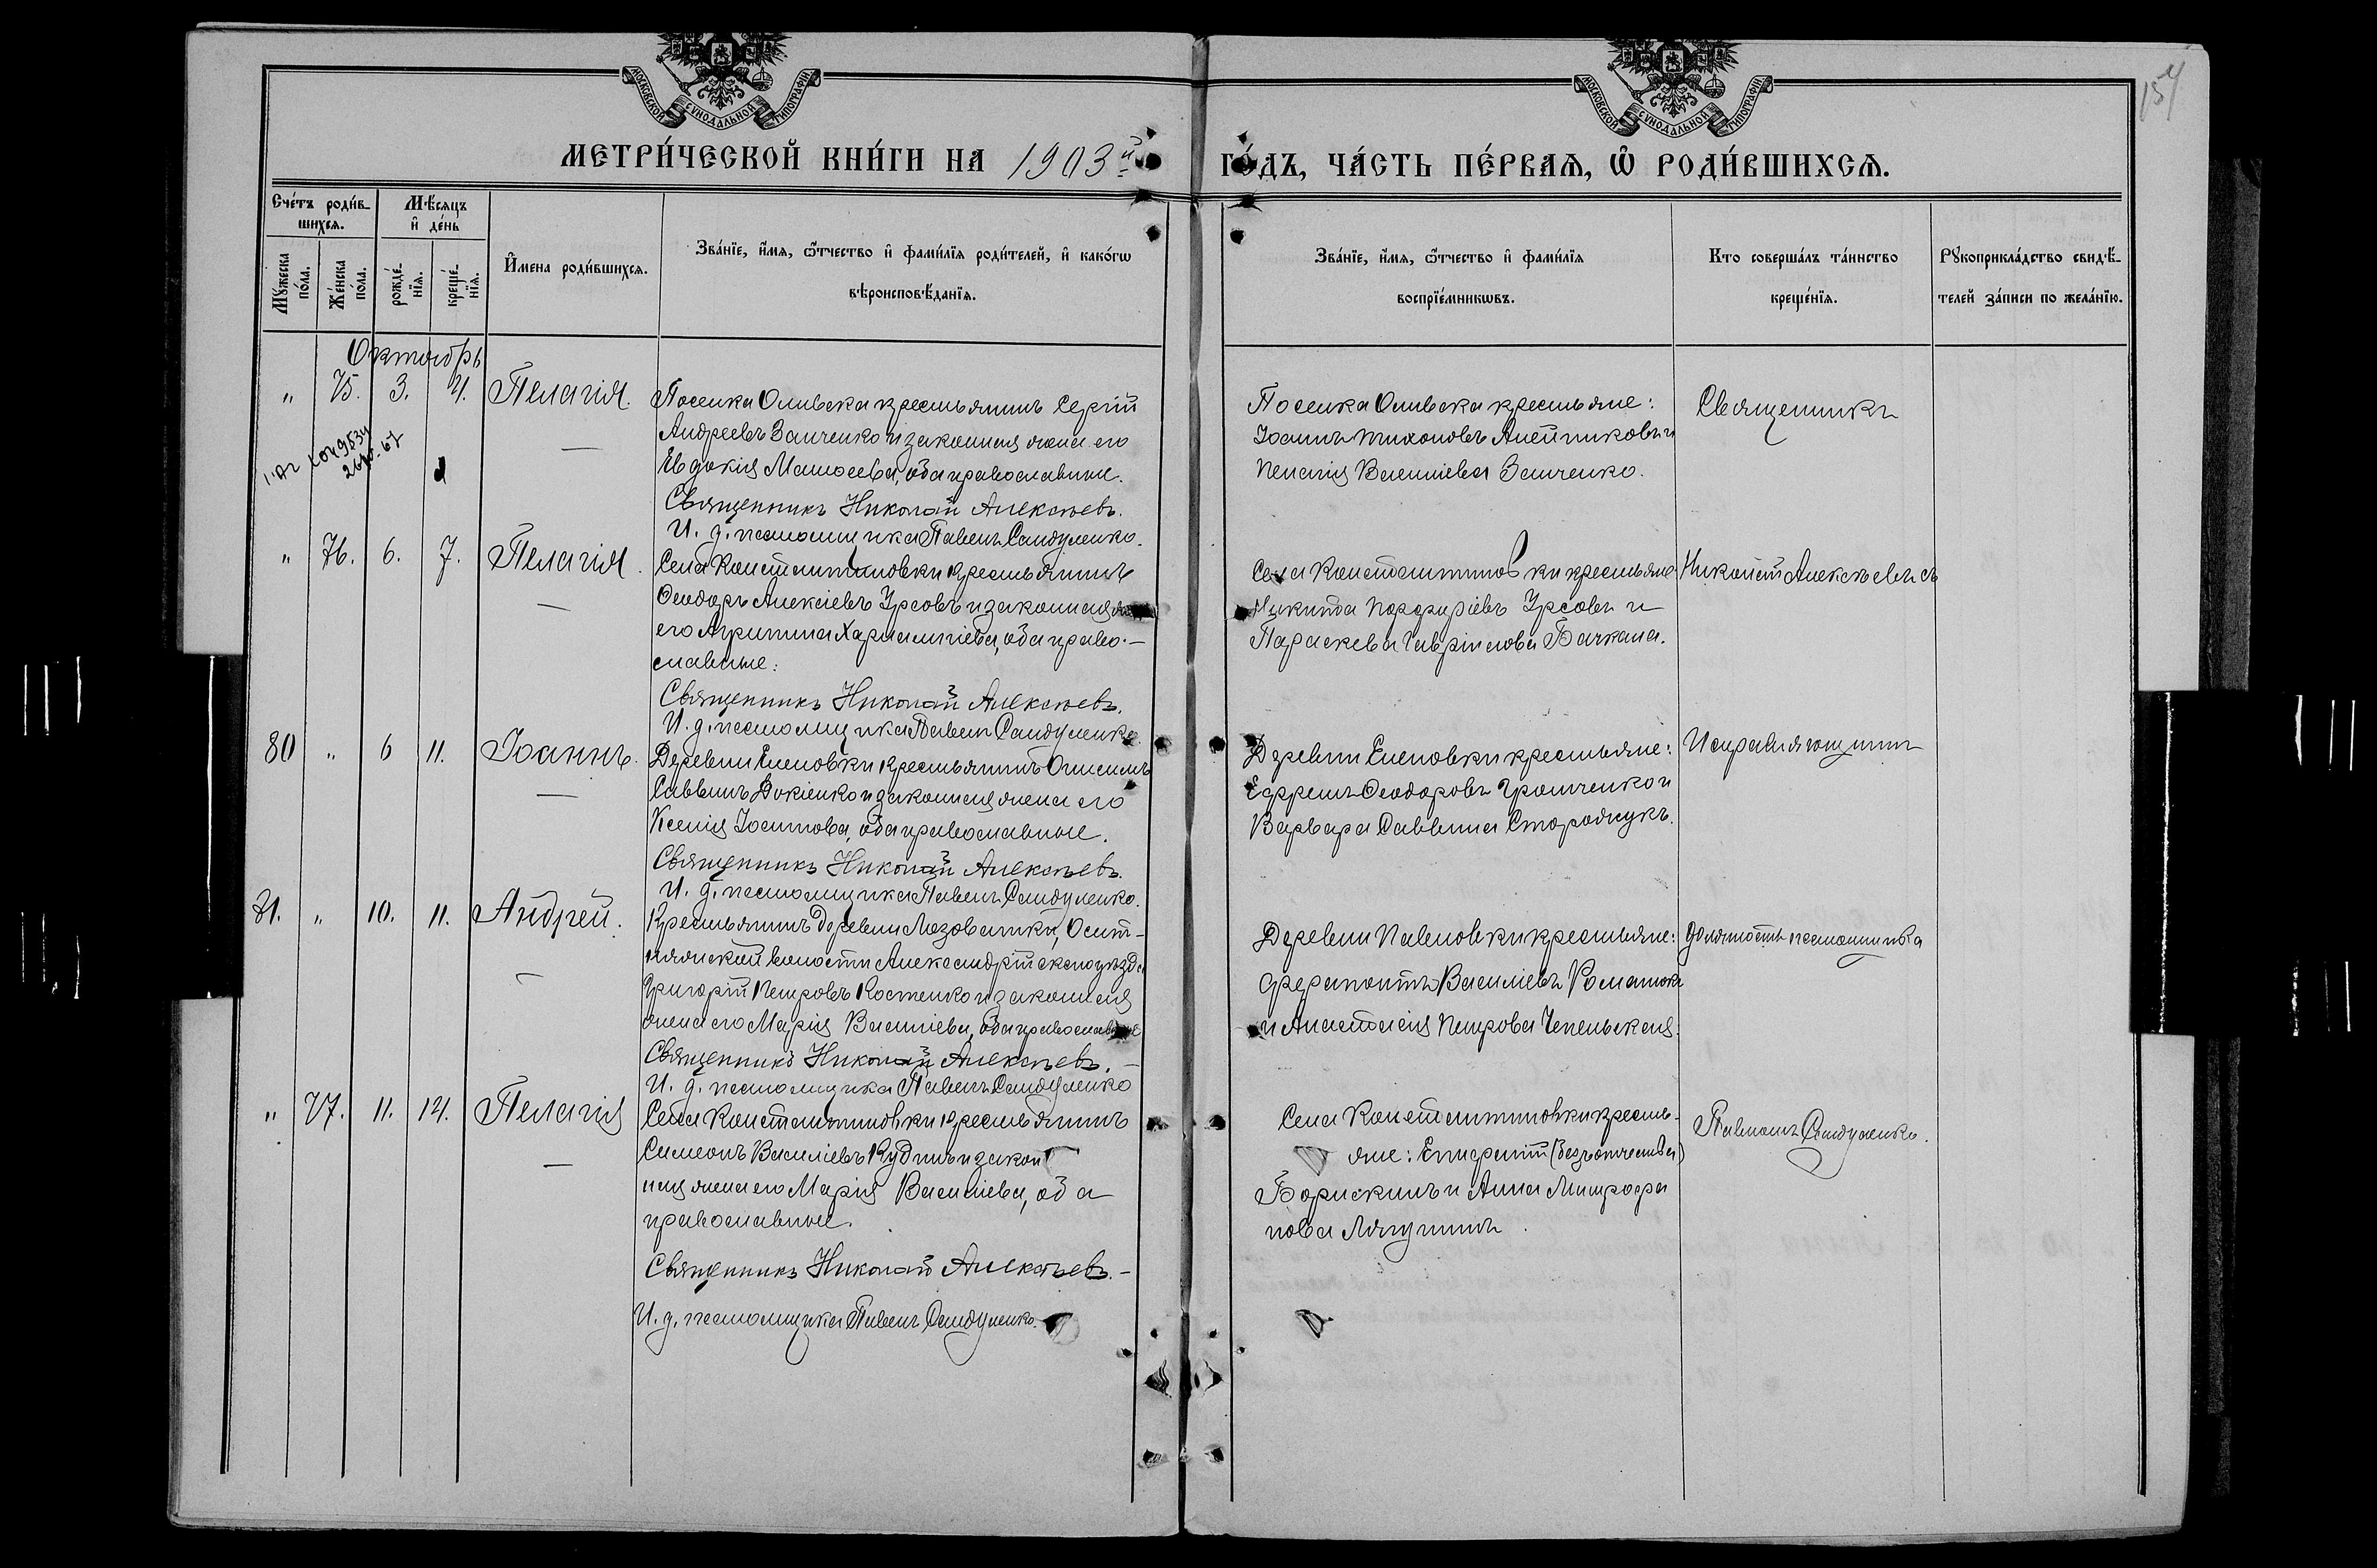 МОСКОВСКОЙ СѴНОДАЛЬНОЙ ТИПОГРАФІИ
МОСКОВСКОЙ СѴНОДАЛЬНОЙ ТИПОГРАФІИ
154
МЕТРИ́ЧЕСКОЙ КНИ́ГИ НА 1903й
ГО́ДЪ, ЧА́СТЬ ПЕ́РВАѦ, Ѡ҆ РОДИ́ВШИХСѦ.
Сче́тъ роди́в-
шихсѧ.
Мꙋ́жеска по́ла.
Же́нска по́ла.
Мѣ́сѧцъ
и҆ де́нь
рожде́-
нїѧ.
креще́-
нїѧ.
И҆мена роди́вшихсѧ.
Зва́нїе, и҆́мѧ, ѻ҆́тчество и҆ фами́лїѧ роди́телей, и҆ како́гѡ
вѣроисповѣ́данїѧ.
Зва́нїе, и҆́мѧ, ѻ҆́тчество и҆ фами́лїѧ
воспрїе́мникѡвъ.
Кто соверша́лъ та́инство
креще́нїѧ.
Рꙋкоприкла́дство свидѣ́-
телей за́писи по жела́нїю.
Октябрь
" 75. 3. 4. Пелагія.
Поселка Ольвска крестьянинъ Сергій
Андреевъ Заиченко и законная жена его
Евдокія Матѳеева, оба православные.
Священникъ Николай Алексѣевъ.
И. д. псаломщика Павелъ Сандуленко.
Поселка Ольвска крестьяне:
Іоаннъ Тихоновъ и
Пелагія Василіева Заиченко.
Священникъ
" 76. 6. 7. Пелагія.
Села Константиновки крестьянинъ
Ѳеодоръ Алексіевъ Урсовъ и законная жена
его Агрипина Харлампіева, оба право-
славные:
Священникъ Николай Алексѣевъ.
И. д. псаломщика Павелъ Сандуленко.
Села Константиновки крестьяне
Никита Порфиріевъ Урсовъ и
Параскева Гавріилова Бачкала.
Николай Алексѣевъ съ
80 " 6 11. Іоаннъ.
Деревни Еленовки крестьянинъ Онисимъ
Саввинъ Вокіенко и законная жена его
Ксенія Іосипова, оба православные.
Священникъ Николай Алексѣевъ.
И. д. псаломщика Павелъ Сандуленко.
Деревни Еленовки крестьяне:
Ефремъ Ѳеодоровъ Громченко и
Варвара Саввина Сторожукъ.
Исправляющимъ
81. " 10. 11. Андрей.
Крестьянинъ деревни Лозоватки,
волости Александрійскаго уѣзда
Григорій Петровъ Костенко и законная
жена его Марія Василіева, оба православные
Священникъ Николай Алексѣевъ.
И. д. псаломщика Павелъ Сандуленко
Деревни Павловки крестьяне:
Ферапонтъ Василіевъ Романюка
и Анастасія Петрова Чепельская.
должность псаломщика
" 77. 11. 14. Пелагія
Села Константиновки крестьянинъ
Симеонъ Василіевъ Кудинъ и закон
ная жена его Марія Василіева, оба
православные.
Священникъ Николай Алексѣевъ.
И. д. псаломщика Павелъ Сандуленко.
Села Константиновки кресть-
яне: Епифаній (безъ отчества)
Борискинъ и Анна Митрофа
нова
Павломъ Сандуленко.